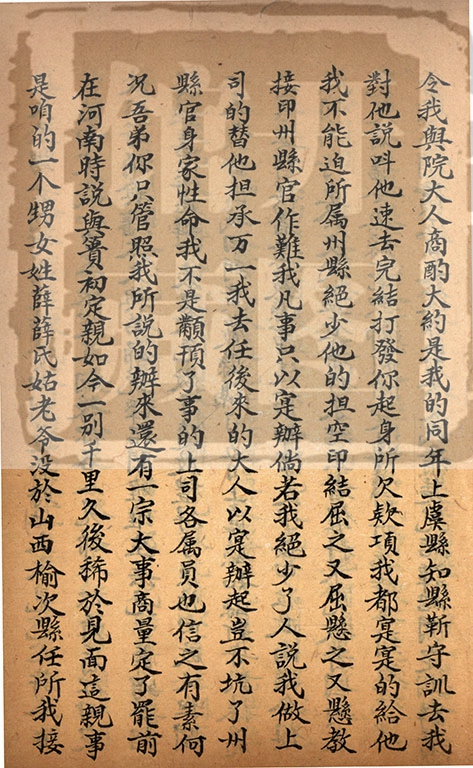 令我與院大人商酌大約是我的同年上虞縣知縣靳守訓去我
對他說呌他速去完結打發你起身所欠欵項我都寔寔的給他
我不能迫所属州縣絕少他的担空印結屈之又屈懸之又懸教
接印州縣官作難我凡事只以寔辦倘若我絕少了人說我做上
司的替他担承万一我去任後來的大人以寔辦起豈不坑了州
縣官身家性命我不是顢頇了事的上司各属員也信之有素何
况吾弟你只管照我所說的辦來還有一宗大事商量定了罷前
在河南時說與簣初定親如今一別千里久後稀於見面這親事
是咱的一个甥女姓薛薛氏姑老爷没於山西榆次縣任所我接